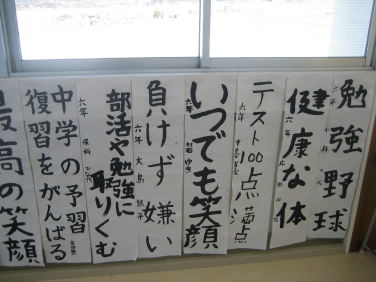 勉強野球
健康な体
六年
テスト100点満点
六年
いつでも笑顔
六年
負けず嫌い
六年 大島
部活や勉強に
取りくむ
六年
中学の予習
復習をがんばる
最高の笑顔